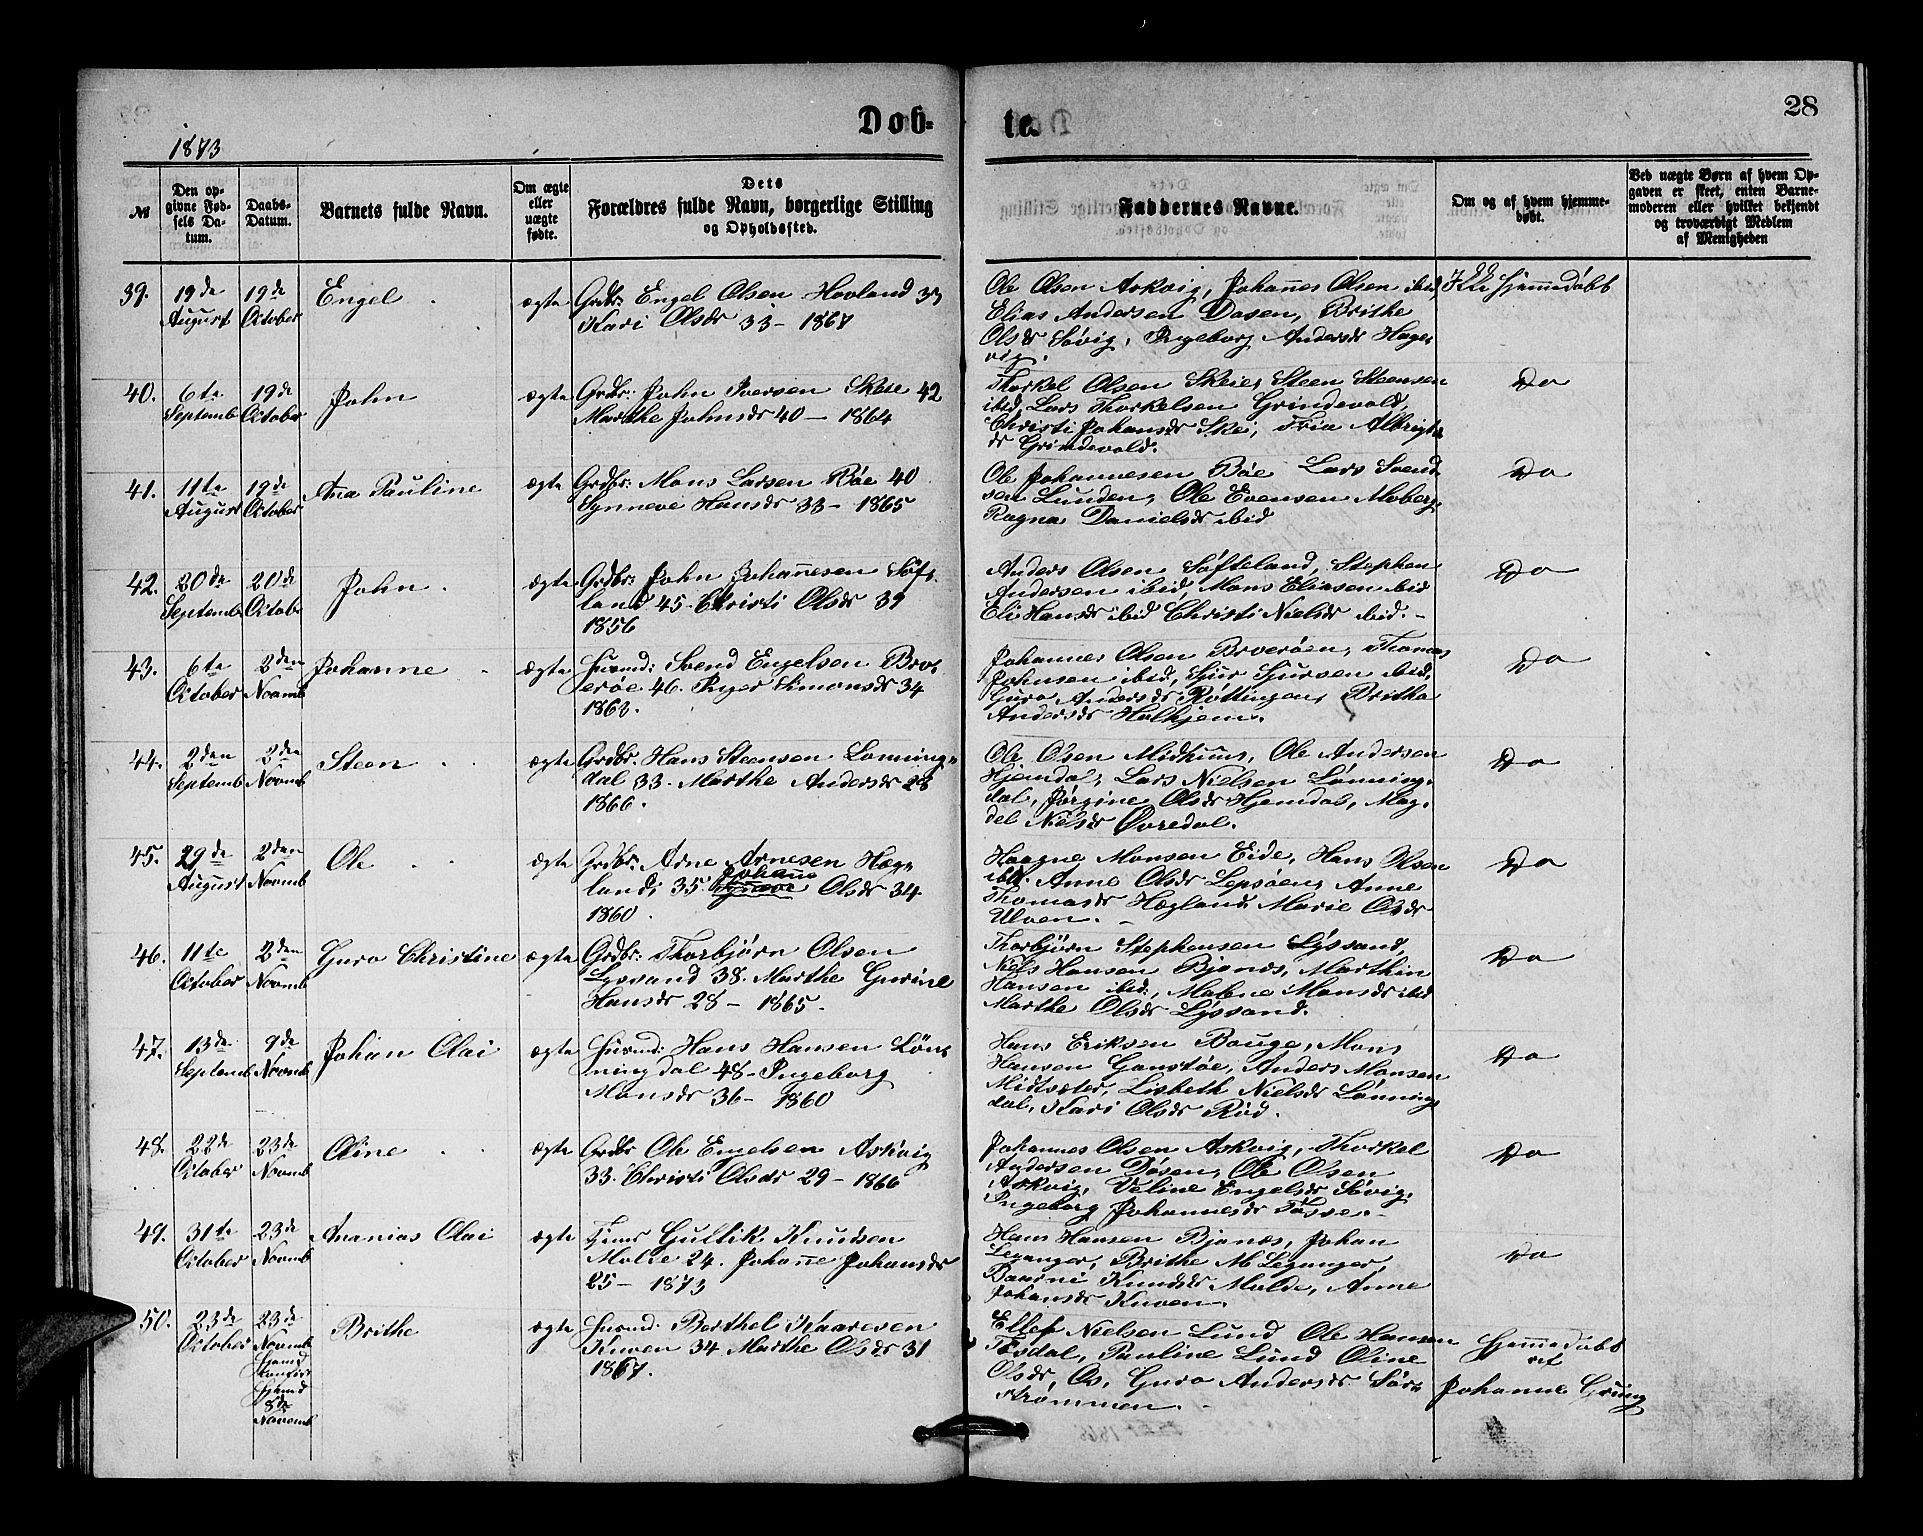 28
Døb-
te.
1873
№
Den opgivne Fødsels Datum.
Daabs-Datum.
Barnets fulde Navn.
Om ægte eller uægte fødte.
Dets Forældres fulde Navn, borgerlige Stilling og Opholdssted.
Faddernes Navne.
Om og af hvem hjemmedøbt.
Ved uægte Børn af hvem Opgaven er skeet, enten Barnemoderen eller hvilket bekjendt og troværdigt Medlem af Menigheden
39.
19de August
19de October
Engel
ægte
Grdbr: Engel Olsen Hovland 33
Kari Olsdr 33 - 1867
Ole Olsen Askvig, Johannes Olsen ibid,
Elias Andersen Dosen, Brithe
Olsdr Søvig, Ingeborg Andersdr Hage-
vig.
Ikke Hjemmedøbt
40.
6te Septemb
19de October
John
ægte
Grdbr: John Iversen Skeie 42
Marthe Johnsdr 40 - 1864
Thorkel Olsen Skeie, Steen Steensen
ibid, Lars Thorkelsen Grindevold,
Christi Johansdr Skei,
dr Grindevold.
Do
41.
11te August
19de October
Ana Pauline
ægte
Grdbr: Mons Larsen Bøe 40
Synneve Hansdr 33 - 1865
Ole Johannesen Bøe Lars Svend-
sen Lunden, Ole Evensen Moberg,
Ragna Danielsdr ibid
Do
42.
20de Septemb
20de Octobe
John
ægte
Grdbr: John Johannesen Søft-
land 45 - Christi Olsdr 39
1856
Anders Olsen Søfteland, Stephen
Andersen ibid, Mons Eliasen ibid
Eli Hansdr ibid Christi Nielsdr ibid. -
Do
43.
6te October
2den Novmb
Johanne
ægte
Huusmd: Svend Engelsen Brv-
erøe 46. Inger Simonsdr 34
1863.
Johannes Olsen Brverøen, Thomas
Johnsen ibid, Sjur Sjursen ibid,
Guro Andersdr Røttingen, Brithe
Andersdr Halhjem.
Do
44.
2den Septemb
2den Novmb
Steen
ægte
Grdbr. Hans Steensen Lonning-
dal 33. Marthe Andersdr 28
1866.
Ole Olsen Midhuus, Ole Andersen
Hjemdal, Lars Nielsen Lønning-
dal, Jørgine Olsdr Hjemdal, Mag-
del Nielsdr Øvredal.
Do
45.
29de August
2den Novmb
Ole
ægte
Grdbr. Arne Arnesen Hæg-
land, 35. Johanne Olsdr 34
1860.
Haagne Monsen Eide, Hans Olsen
ibid. Anne Olsdr Lepsøen, Anne
Thomasdr Hægland Marie Olsdr
Ulven.
Do
46.
11te October
2den Novmb
Guro Christine
ægte
Grdbr: Thorbjørn Olsen
Lysand 38. Marthe Gurine
Hansdr 28 - 1865.
Thorbjørn Stephensen Lyssand,
Niels Hansen Bjønæs, Marthin
Hansen ibid, Malene Monsdr ibid
Marthe Olsdr Lyssand.
Do
47.
13de Septemb
9de Novmb
Johan Olai
ægte
Huusmd: Hans Hansen Løn-
ningdal 48 - Ingeborg
Monsdr 36 - 1860
Hans Eriksen Bouge, Mons
Hansen Gaustøe, Anders Monsen
Midtsæter, Lisbeth Nielsdr Lønning-
dal, Kari Olsdr Rød.
Do
48.
22de October
23de Novmb
Oline
ægte
Grdbr Ole Engelsen Askvig
33. Christi Olsdr 29 - 1866
Johannes Olsen Askvig, Thorkel
Andersen Døsen, Ole Olsen
Askvig, Veline Engelsdr Søvig,
Ingeborg Johannesdr Tøsse.
Do
49.
31te October
23de Novmb
Ananias Olai
ægte
Gullik Knudsen
Molde 24. Johanne Johansdr
25 - 1873
Hans Hansen Bjønæs, Johan
Leganger, Brithe M Leganger,
Knudsdr Molde, Anne
Johansdr Kuven -.
Do
50.
23de October
23de Novmb
8de Novemb
Brithe
ægte
Huusmd: Berthel Kaaresen
Kuven 34 Marthe Olsdr 31
1867.
Ellef Nielsen Lund Ole Hansen
Tøsdal, Pauline Lund Oline
Olsdr, Os, Guro Andersdr Sør-
strømmen.
Hjemmedøbt
af
Johanne Gring